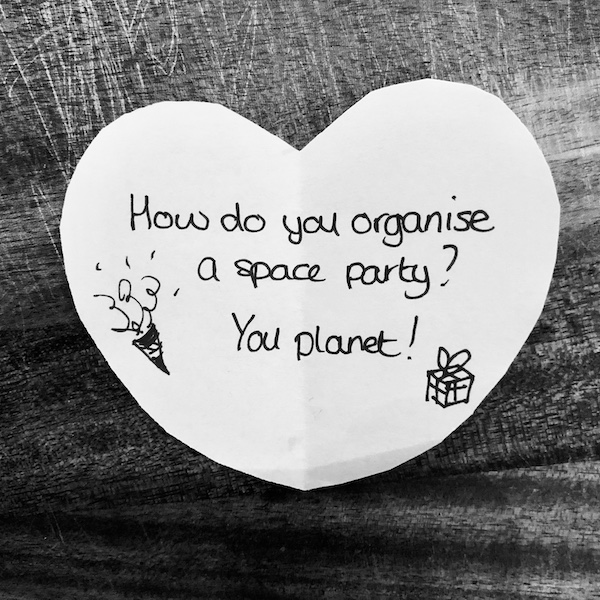 How do you organise
a space party?
You planet!